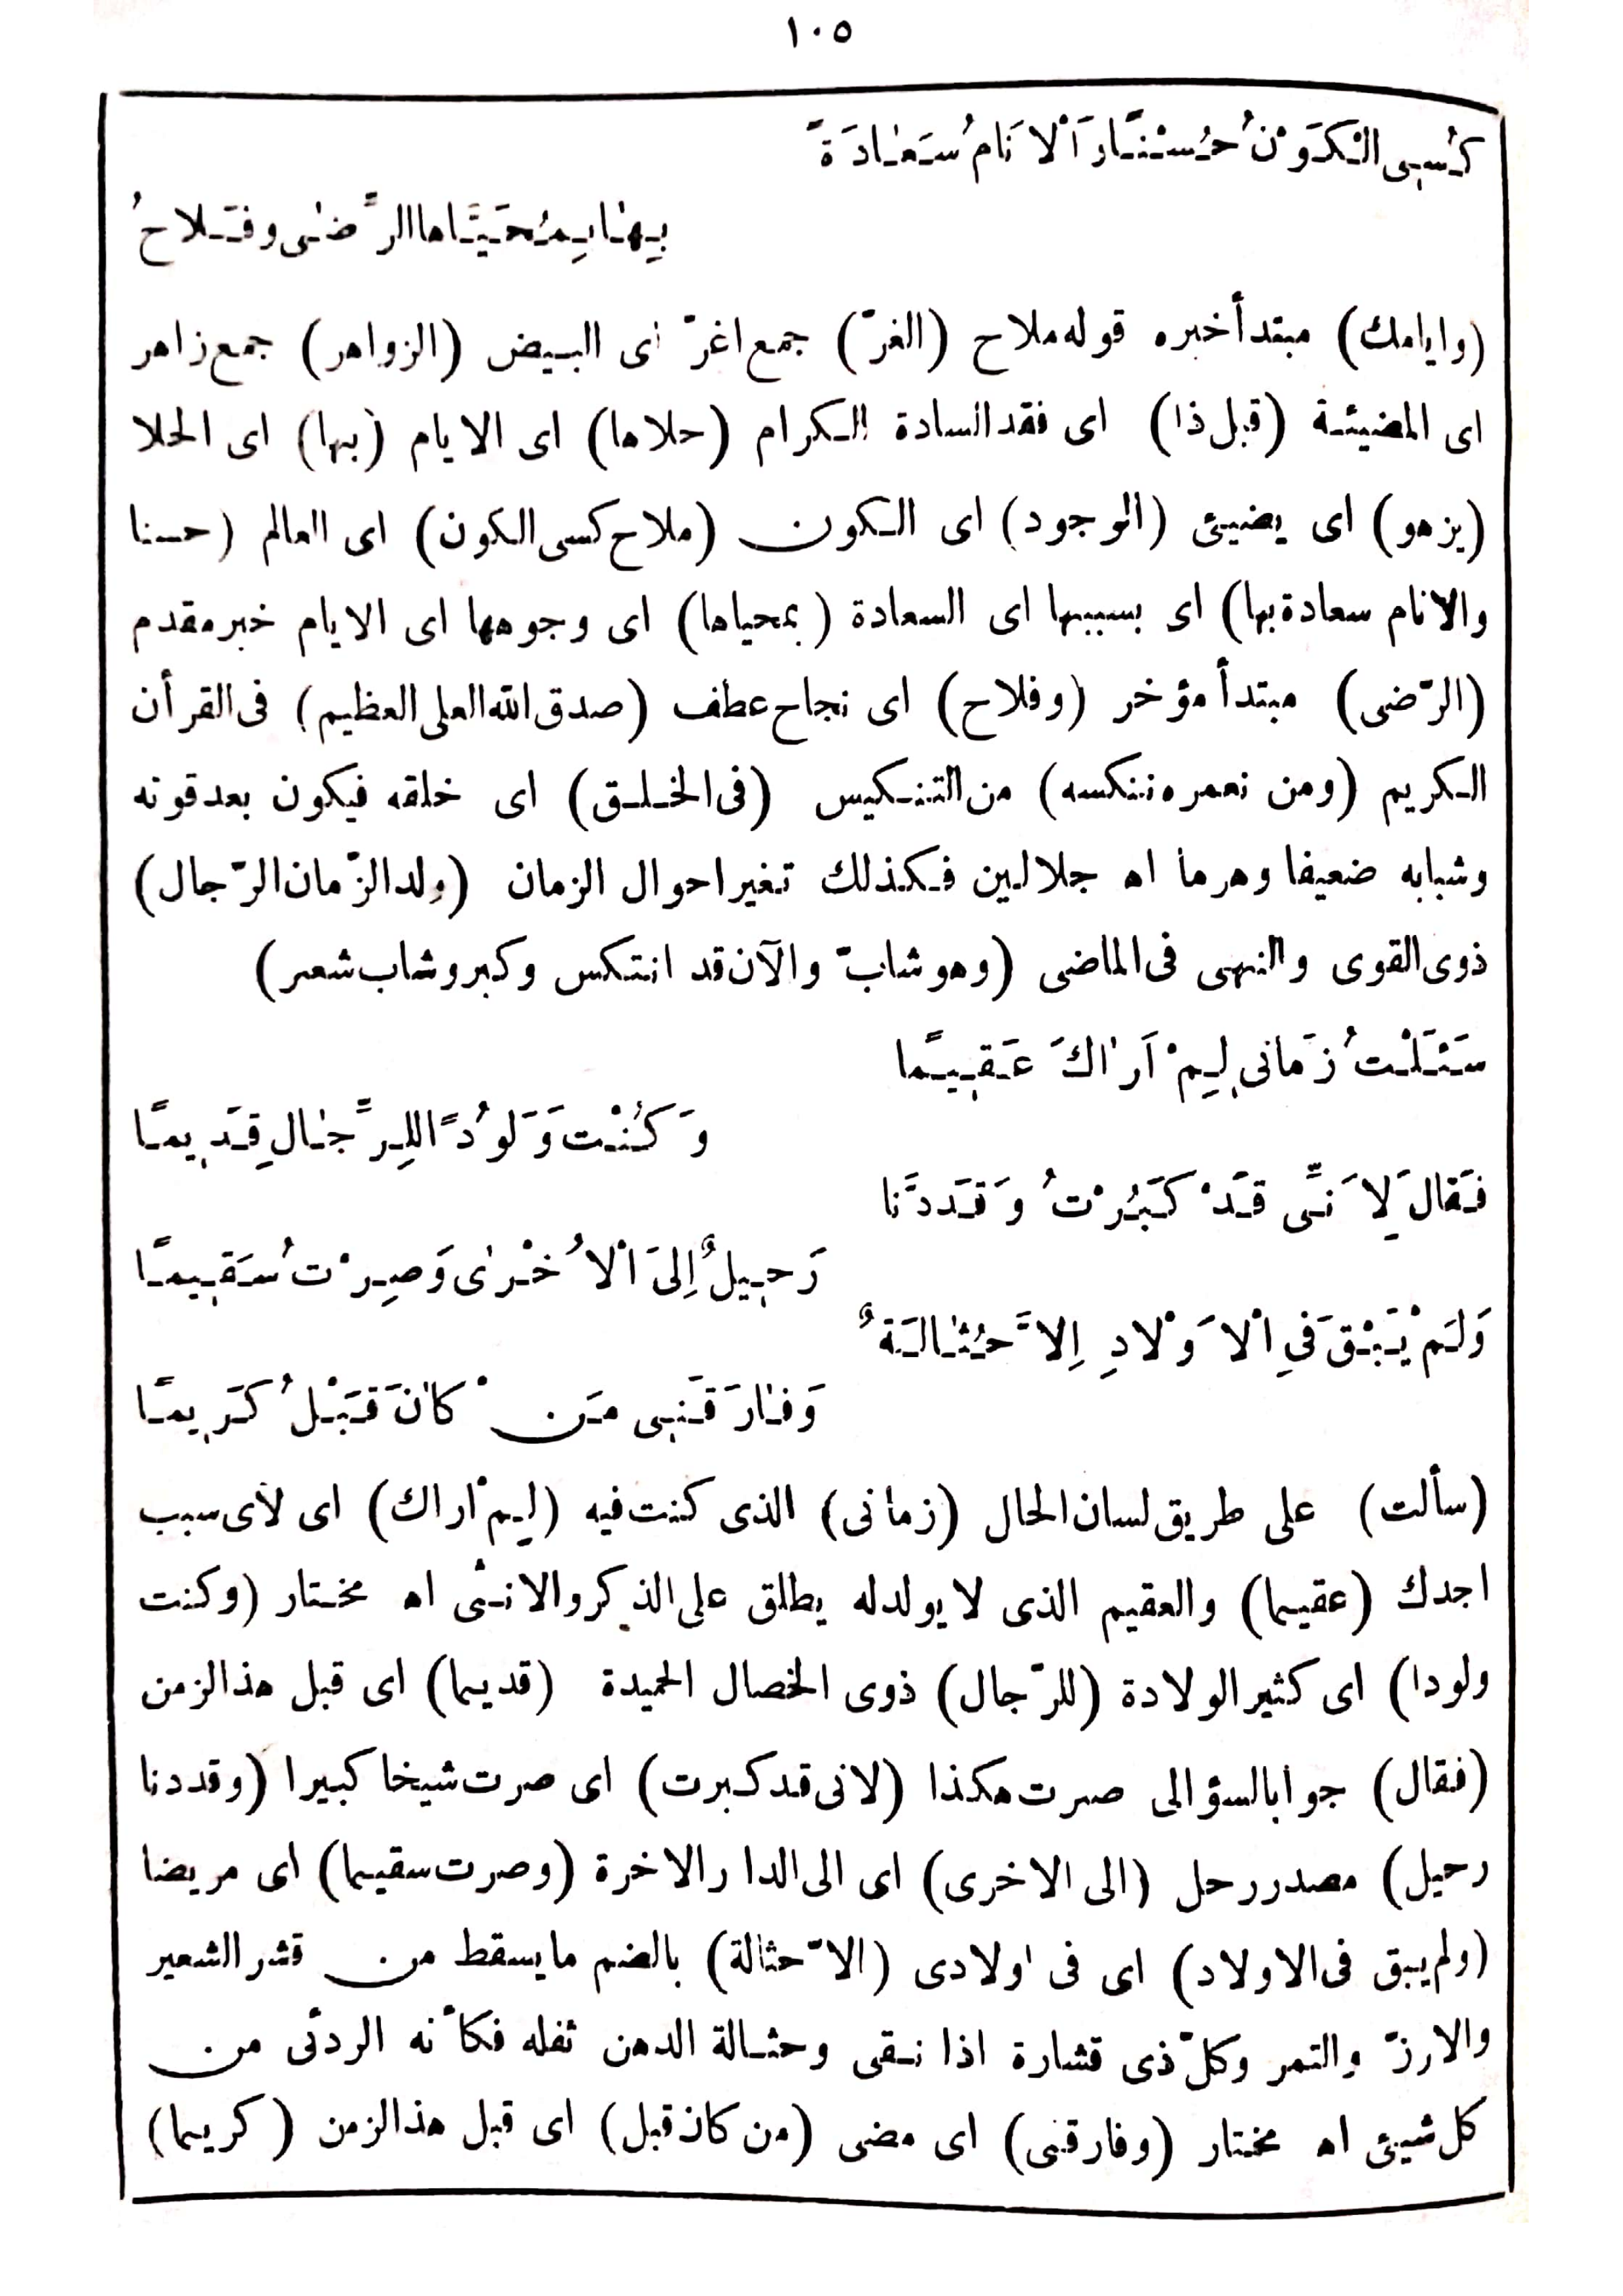 ١٠٥
كُسِى الْكَوْنُ حُسْنًا وَالْاَنَامُ سَعَادَةً
بِهَا بِمُحَيَّاهَا الرِّضٰى وَفَلَاحُ
(وايامك) مبتدأ خبره قوله ملاح (الغرّ) جمع اغرّ اى البيض (الزواهر) جمع زاهر
اى المضيئة (قبل ذا) اى فقد السادة الكرام (حلاها) اى الايام (بها) اى الحلا
(يزهو) اى يضيئ (الوجود) اى الكون (ملاح كسى الكون) اى العالم (حسنا
والانام سعادة بها) اى بسببها اى السعادة (بمحياها) اى وجوهها اى الايام خبر مقدم
(الرّضى) مبتدأ مؤخر (وفلاح) اى نجاح عطف (صدق الله العلى العظيم) فى القرأن
الكريم (ومن نعمره ننكسه) من التنكيس (فى الخلق) اى خلقه فيكون بعد قوته
وشبابه ضعيفا وهرما اه جلالين فكذلك تغير احوال الزمان (ولد الزّمان الرّجال)
ذوى القوى والنهى فى الماضى (وهو شابّ والآن قد انتكس وكبر وشاب شعر)
سَئَلْتُ زَمَانِى لِمْ اَرَاكَ عَقِيمًا
وَكُنْتَ وَلُودًا لِلرِّجَالِ قَدِيمًا
فَقَالَ لِاَنِّى قَدْ كَبُرْتُ وَقَدْ دَنَا
رَحِيلٌ اِلَى الْاُخْرٰى وَصِرْتُ سَقِيمًا
وَلَمْ يَبْقَ فِى الْاَوْلَادِ اِلَّا حُثَالَةٌ
وَفَارَقَنِى مَنْ كَانَ قَبْلُ كَرِيمًا
(سألت) على طريق لسان الحال (زمانى) الذى كنت فيه (لِمْ اراك) اى لأى سبب
اجدك (عقيما) والعقيم الذى لا يولد له يطلق على الذكر والانثى اه مختار (وكنت
ولودا) اى كثير الولادة (للرّجال) ذوى الخصال الحميدة (قديما) اى قبل هذا الزمن
(فقال) جوابا لسؤالى صرت هكذا (لانى قد كبرت) اى صرت شيخا كبيرا (وقد دنا
رحيل) مصدر رحل (الى الاخرى) اى الى الدار الاخرة (وصرت سقيما) اى مريضا
(ولم يبق فى الاولاد) اى فى اولادى (الاّ حثالة) بالضم ما يسقط من قشر الشعير
والارزّ والتمر وكلّ ذى قشارة اذا نقى وحثالة الدهن ثفله فكأنه الردئى من
كل شيئ اه مختار (وفارقنى) اى مضى (من كان قبل) اى قبل هذا الزمن (كريما)